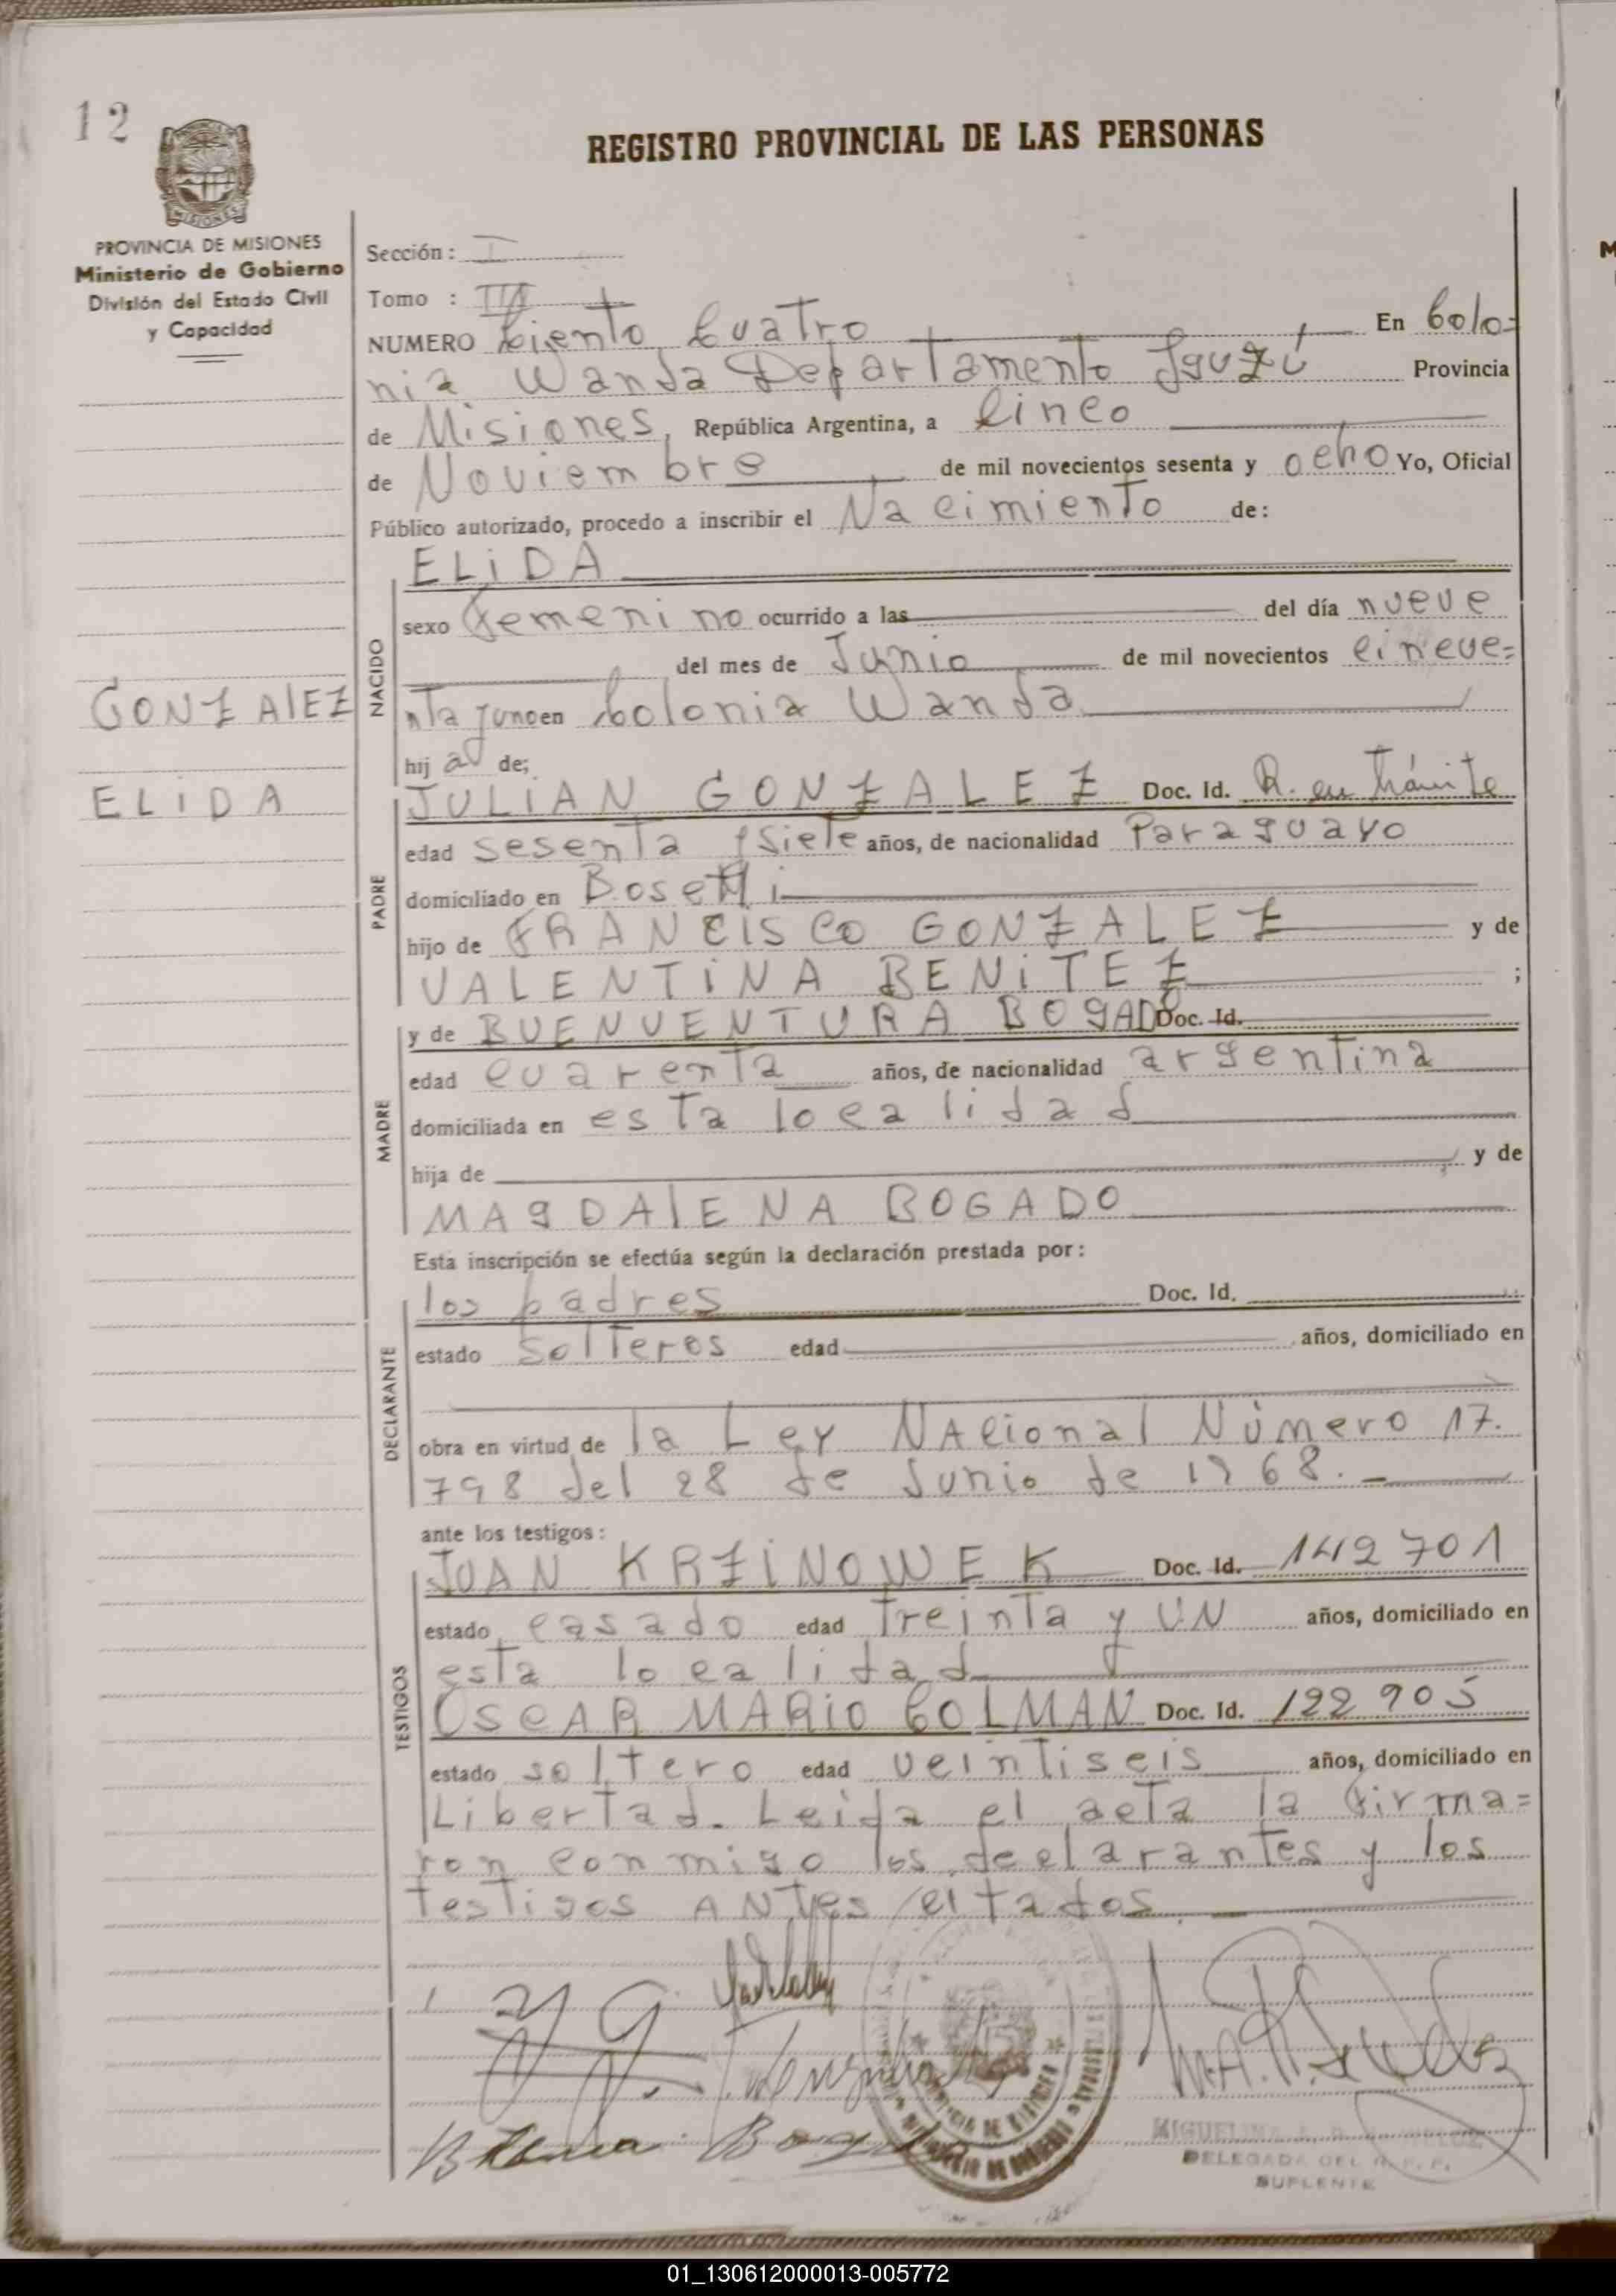 12
REGISTRO PROVINCIAL DE LAS PERSONAS
MISIONES
PROVINCIA DE MISIONES
Ministerio de Gobierno
División del Estado Civil
y Capacidad
Sección: I
Tomo :
NUMERO Ciento Cuatro En Colo=
nia Wanda Departamento Iguazú Provincia
de Misiones, República Argentina, a Cinco
de Noviembre de mil novecientos sesenta y ocho Yo, Oficial
Público autorizado, procedo a inscribir el Nacimiento de:
NACIDO
ELiDA
sexo femenino ocurrido a las del día nueve
del mes de Junio de mil novecientos cincue=
GONZAlEZ
nta y uno en Colonia Wanda
hij a de;
ELIDA
PADRE
JULIAN GONZALEZ Doc. Id. R. en trámite
edad sesenta y siete años, de nacionalidad Paraguayo
domiciliado en Bosetti
hijo de FRANCISCO GONZALEZ y de
VALENTiNA BENiTEZ ;
MADRE
y de BUENVENTURA BOGADO Doc. Id.
edad cuarenta años, de nacionalidad argentina
domiciliada en esta localidad
hija de y de
MAgDAlENA BOGADO
Esta inscripción se efectúa según la declaración prestada por:
DECLARANTE
los padres Doc. Id.
estado solteros edad años, domiciliado en
obra en virtud de la Ley NAcional Número 17.
798 del 28 de Junio de 1968.-
ante los testigos:
TESTIGOS
JUAN KRZiNOWEK Doc. Id. 142701
estado casado edad treinta y UN años, domiciliado en
esta localidad
OSCAR MARIO COLMAN Doc. Id. 122905
estado soltero edad veintiseis años, domiciliado en
Libertad. Leida el acta la firma=
ron conmigo los declarantes y los
testigos ANtes citados.
DELEGADA DEL R. P. P.
SUPLENTE
01_130612000013-005772